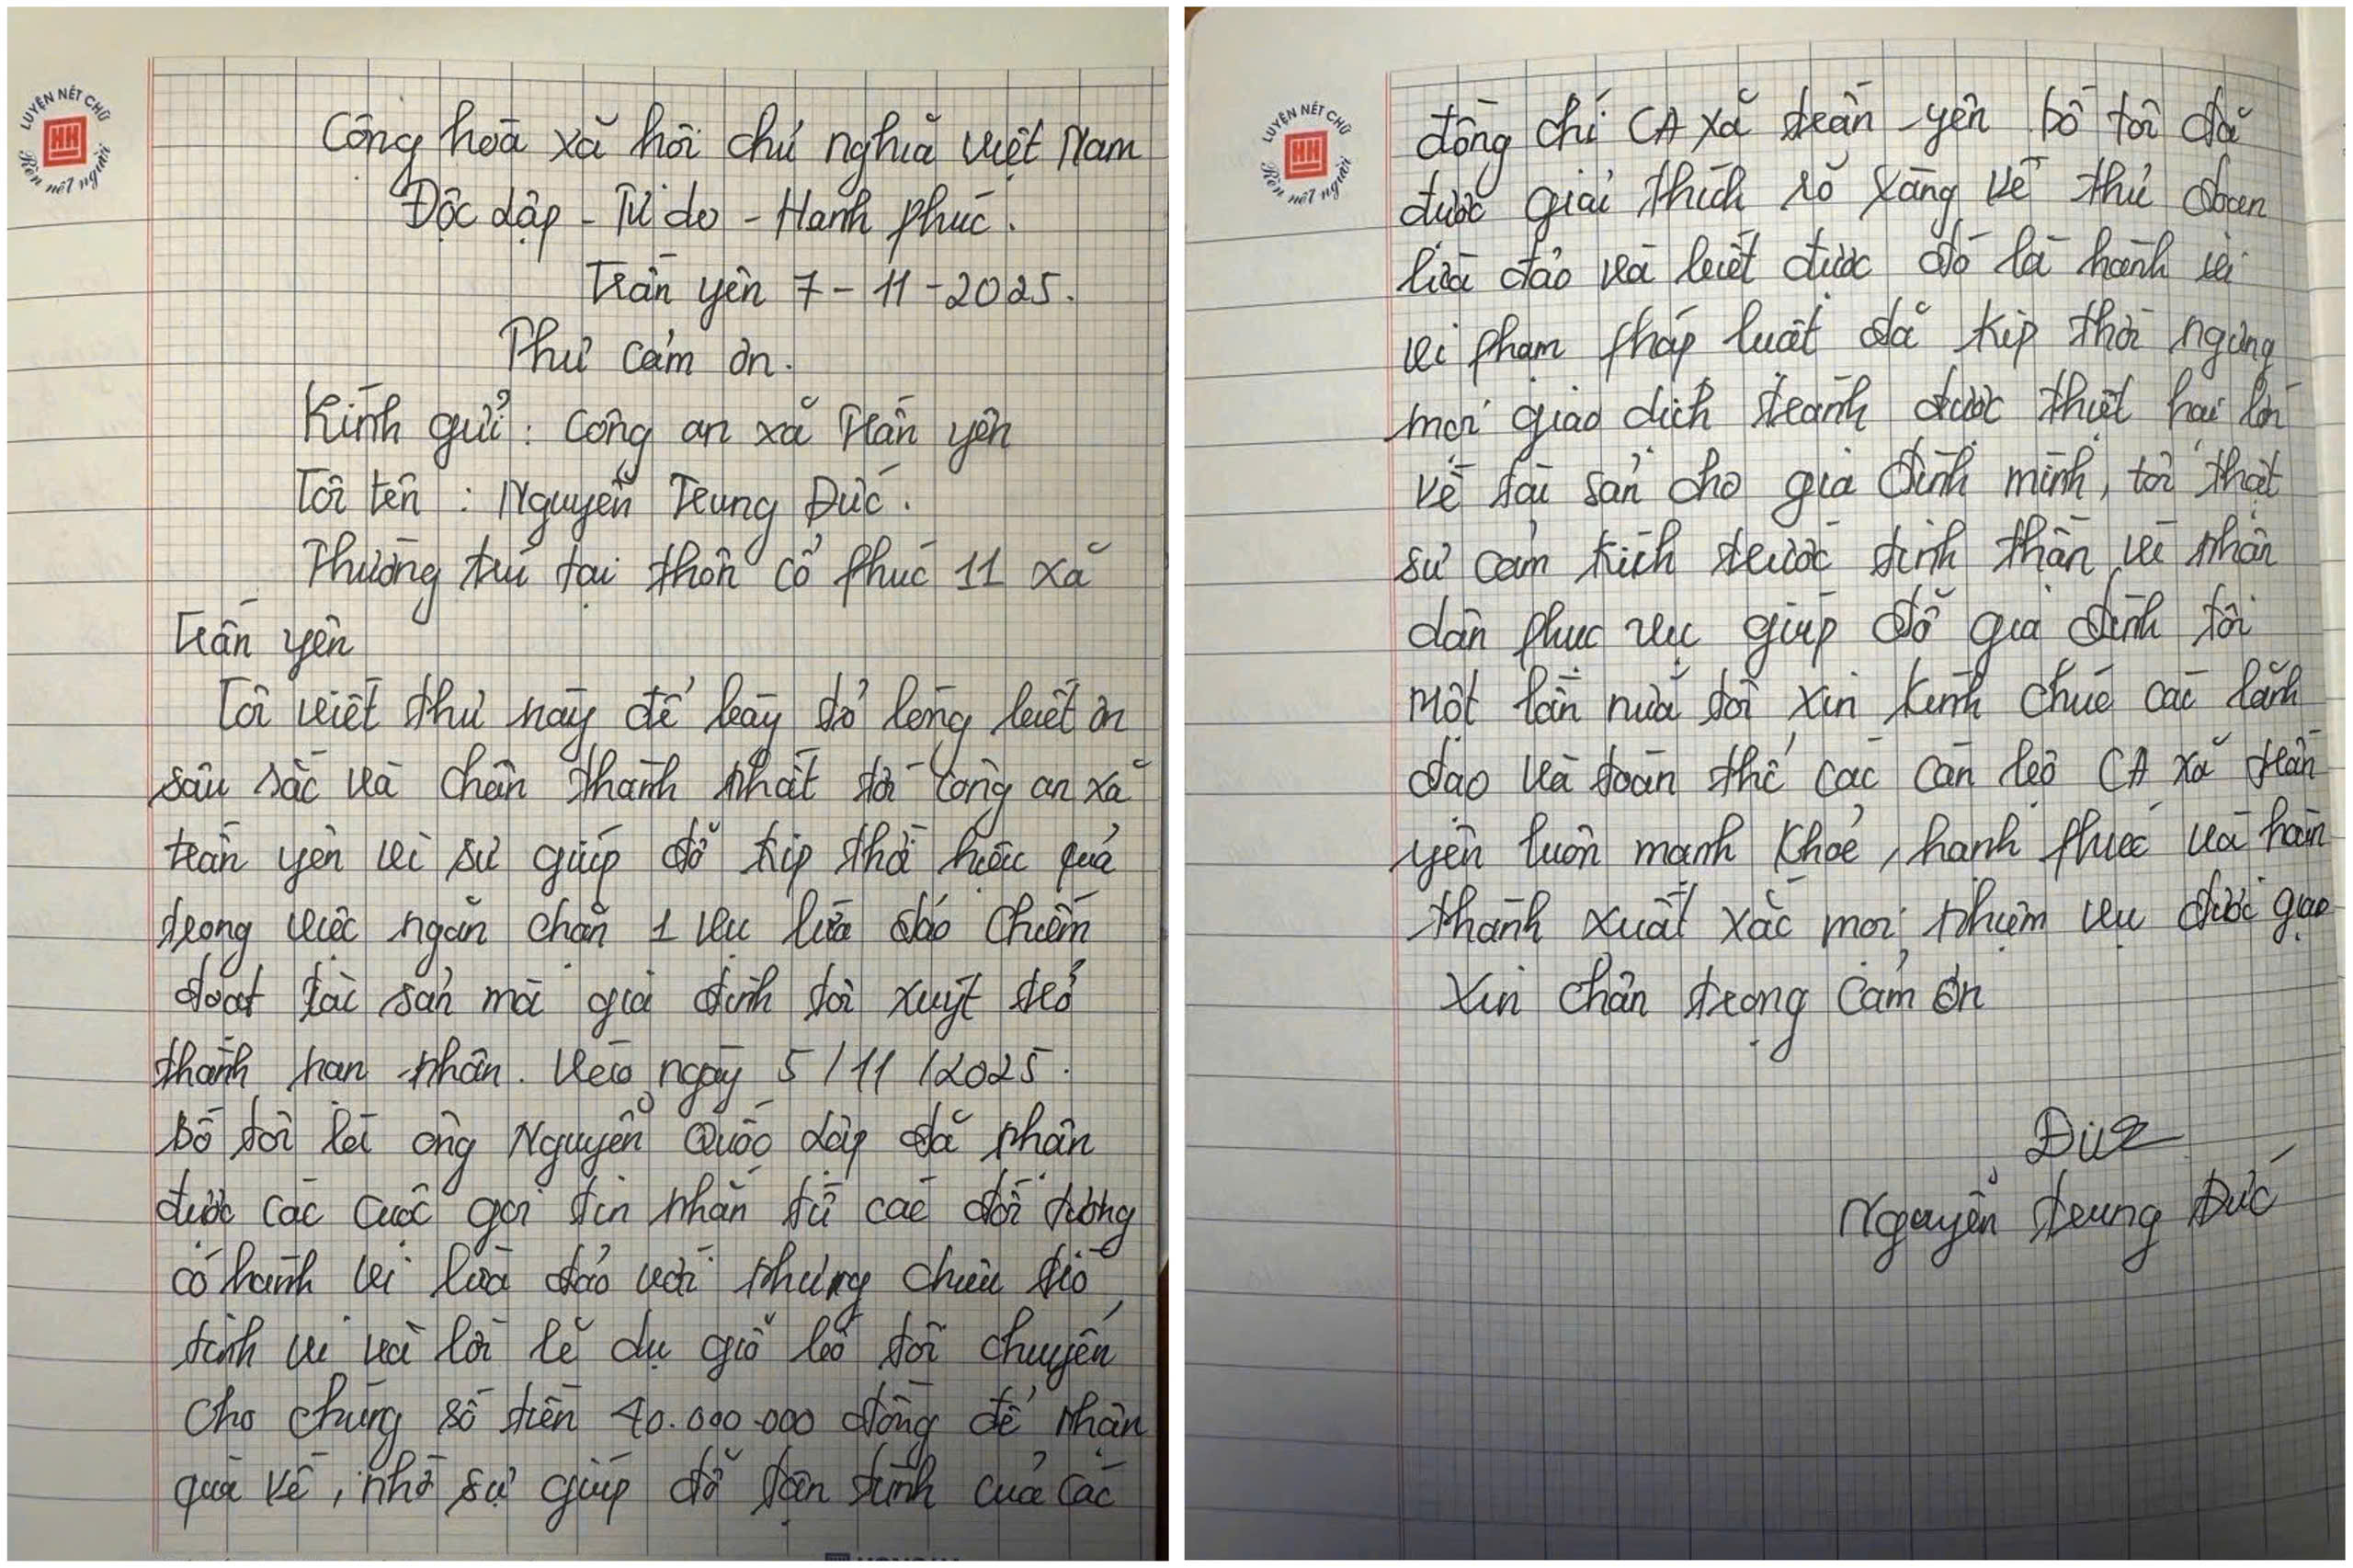 LUYỆN NÉT CHỮ
HH
Rèn nết người
Cộng hoà xã hội chủ nghĩa Việt Nam
Độc lập - Tự do - Hạnh phúc.
Trấn yên 7-11-2025.
Thư cảm ơn.
Kính gửi : Công an xã Trấn yên
Tôi tên : Nguyễn Trung Đức.
Thường trú tại thôn cổ phúc 11 xã
Trấn yên
Tôi viết thư này để bày tỏ lòng biết ơn
sâu sắc và chân thành nhất tới công an xã
trấn yên vì sự giúp đỡ kịp thời hiệu quả
trong việc ngăn chặn 1 vụ lừa đảo chiếm
đoạt tài sản mà gia đình tôi xuýt trở
thành nạn nhân. Vào ngày 5/11/2025.
Bố tôi là ông Nguyễn Quốc Lập đã nhận
được các cuộc gọi tin nhắn từ các đối tượng
có hành vi lừa đảo với những chiêu trò
tinh vi và lời lẽ dụ giỗ bố tôi chuyển
cho chúng số tiền 40.000.000 đồng để nhận
quà về, nhờ sự giúp đỡ tận tình của các
LUYỆN NÉT CHỮ
HH
Rèn nết người
đồng chí CA xã trấn yên bố tôi đã
được giải thích rõ ràng về thủ đoạn
lừa đảo và biết được đó là hành vi
vi phạm pháp luật đã kịp thời ngừng
mọi giao dịch tránh được thiệt hại lớn
về tài sản cho gia đình mình, tôi thật
sự cảm kích trước tinh thần vì nhân
dân phục vụ giúp đỡ gia đình tôi
một lần nữa tôi xin kính chúc các lãnh
đạo và toàn thể các cán bộ CA xã trấn
yên luôn mạnh khoẻ, hạnh phúc và hoàn
thành xuất xắc mọi nhiệm vụ được giao
Xin chân trọng cảm ơn
Đức
Nguyễn trung Đức